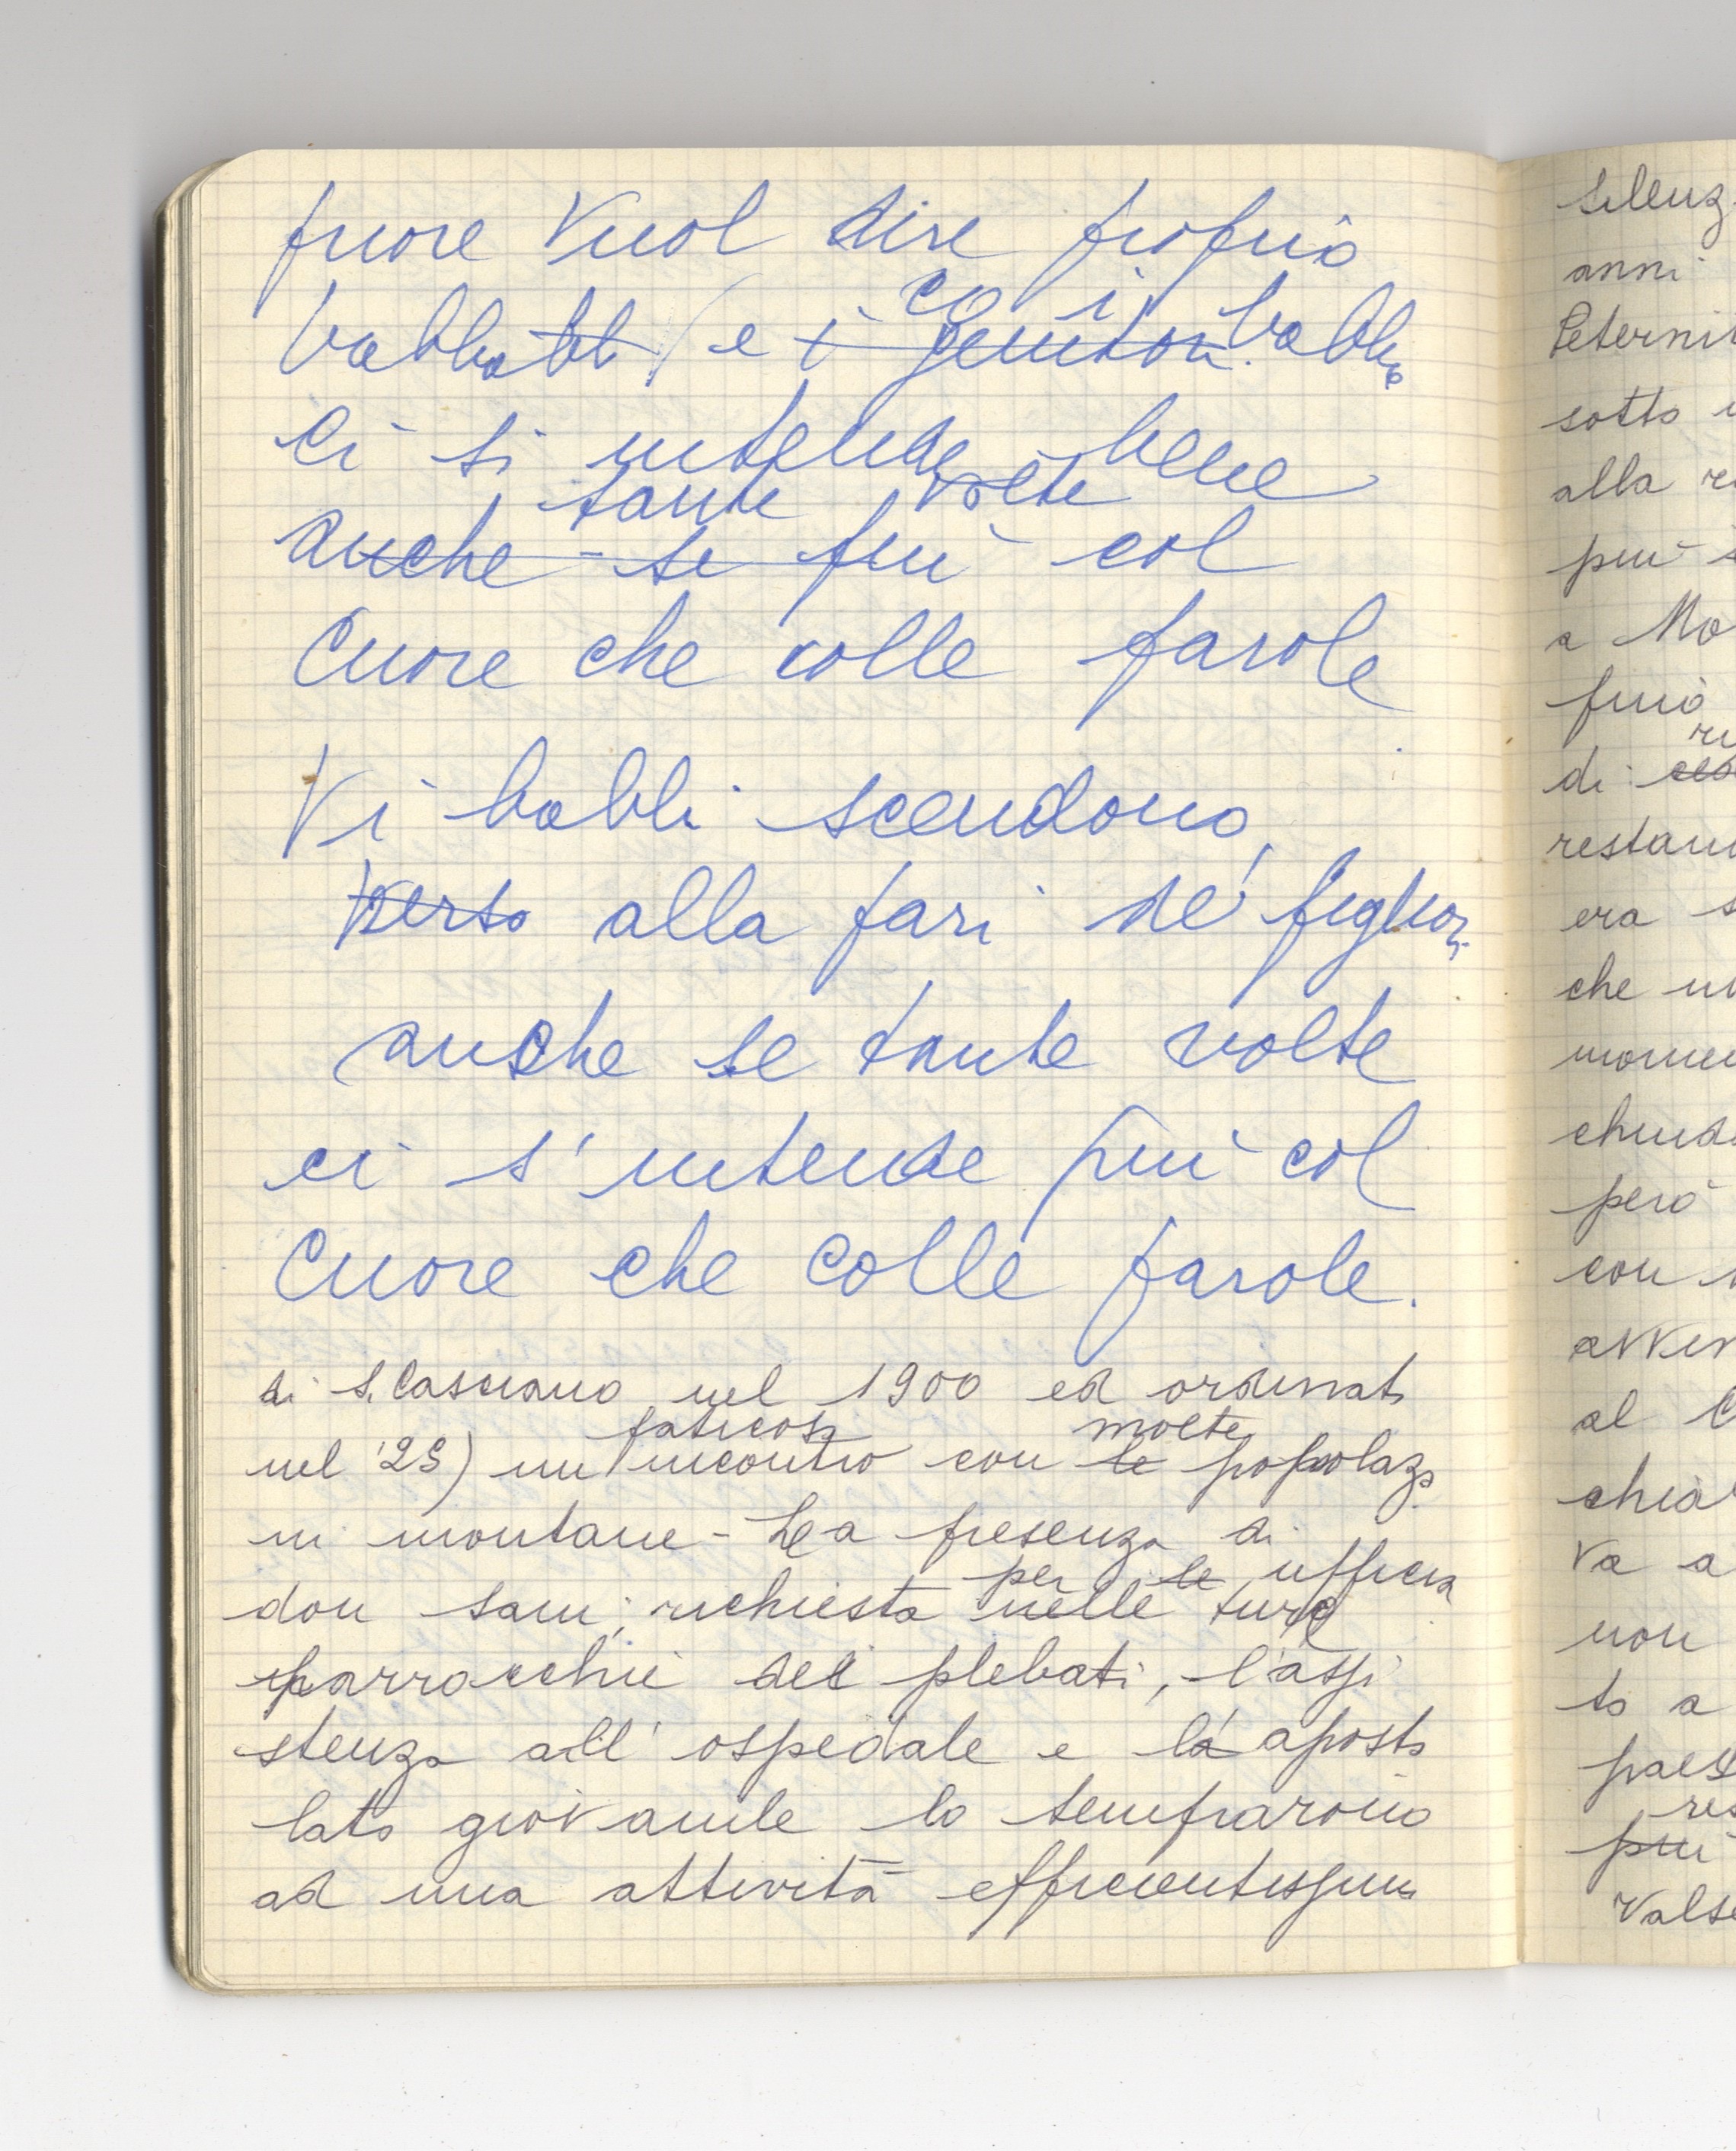 priore vuol dire proprio
babbo bb (e i genitori co i babbi
ci si intende bene
tante volte
anche se più col
cuore che colle parole
Vi babbi scendono
verso alla pari de' figlioli
anche se tante volte
ci s'intende più col
cuore che colle parole.
di S. Casciano nel 1900 ed ordinato
faticoso molte
nel '25) un incontro con le popolaz.
ni montane - La presenza di
per le ufficia
don Sani, richiesta nelle ture
parrocchie dei plebati, l'assi
stenza all'ospedale e la aposto
lato giovanile lo temprarono
ad una attività efficientissima
silenz
anni
Peterni
sotto
alla
più
a Mo
finiò
di
restan
era
che
momen
chiud
però
con
avven
al
chia
va a
non
to a
paes
più
Valse